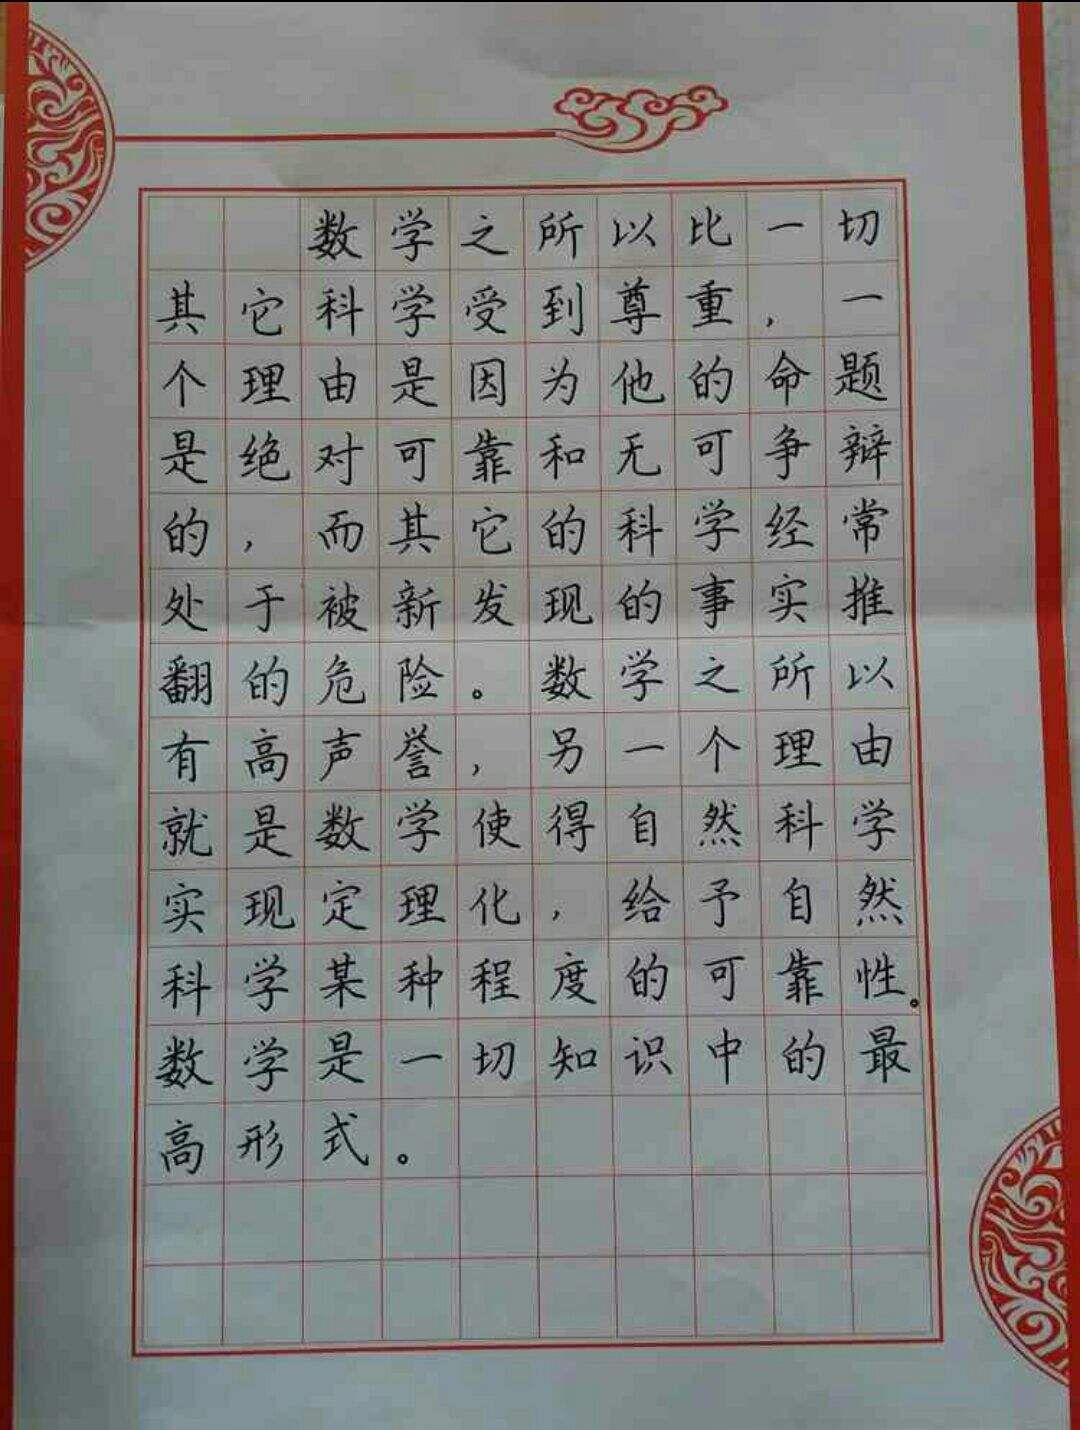 数学之所以比一切
其它科学受到尊重，一
个理由是因为他的命题
是绝对可靠和无可争辩
的，而其它的科学经常
处于被新发现的事实推
翻的危险。数学之所以
有高声誉，另一个理由
就是数学使得自然科学
实现定理化，给予自然
科学某种程度的可靠性。
数学是一切知识中的最
高形式。